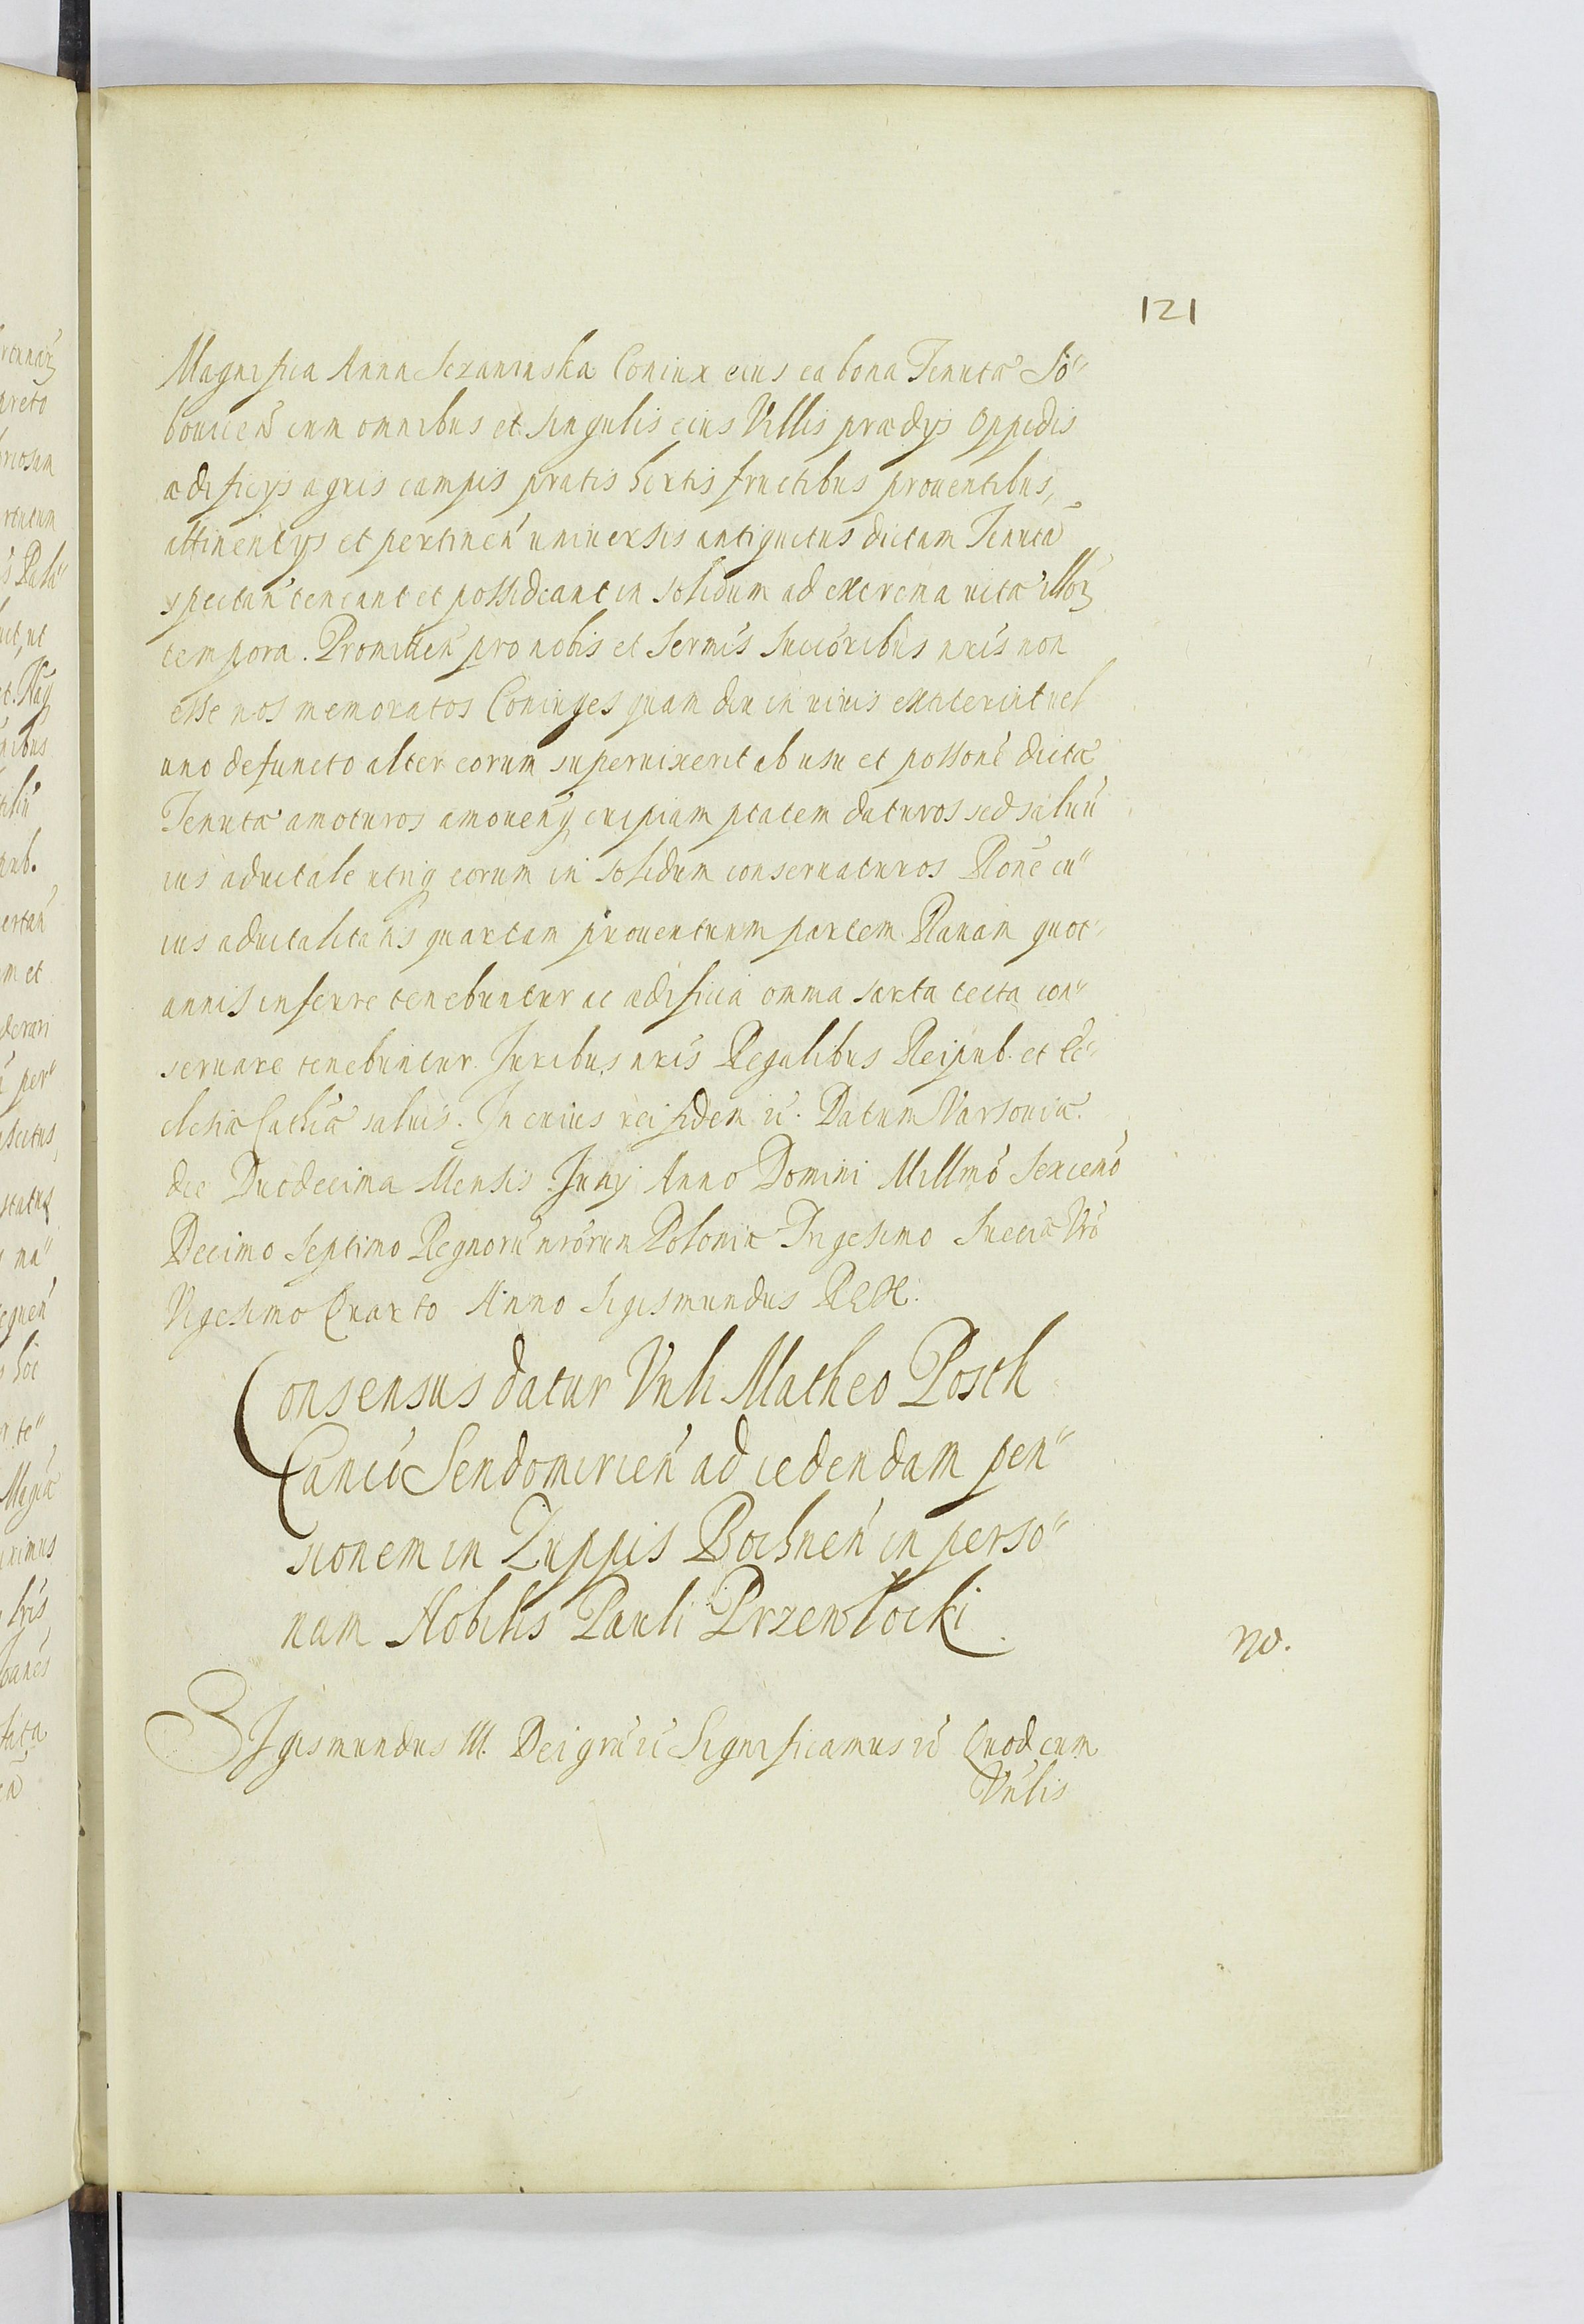 121
Magnifica Anna Sczaninska Coniux eius ea bona Tenutæ So"
bouicen̄ cum omnibus et singulis eius Villis prædijs Oppidis
ædificijs agris campis pratis hortis fructibus prouentibus,
attinentijs et pertinen̄ uniuersis antiquitus dictam Tenutā
spectan̄ teneant et possideant in solidum ad extrema uitæ illoꝝ
tempora. Promitten̄ pro nobis et Sermis̄ Succōribus nr̄is non
esse nos memoratos Coniuges quam diu in uiuis extiterint uel
uno defuncto alter eorum superuixerit ab usu et possonē dictæ
Tenutæ amoturos amouenꝗ cuipiam ptātem daturos sed saluū
ius aduitale utriꝗ eorum in solidum conseruaturos Rōne cu"
ius aduitalitatis quartam prouentuum partem Rauam quot"
annis inferre tenebuntur ac ædificia omnia sarta tecta con"
seruare tenebuntur. Juribus nr̄is Regalibus Reipub. et Ec"
clesiæ Cathcæ saluis. In cuius rei fidem ec̄. Datum Varsouiæ.
die Duodecima Mensis Junij Anno Domini Millmō Sexcenō
Decimo Septimo Regnorū nrōrum Poloniæ Trigesimo Sueciæ Vrō
Vigesimo Quarto Anno Sigismundus REX.
Consensus datur Vnli Matheo Posth
Cancō Sendomirien̄ ad cedendam pen"
sionem in Zuppis Bochnen̄ in perso"
nam Nobilis Pauli Przewłocki.
no.
SIgismundus III. Dei grā ec̄ Significamus ec̄ Quod cum
Vnlis